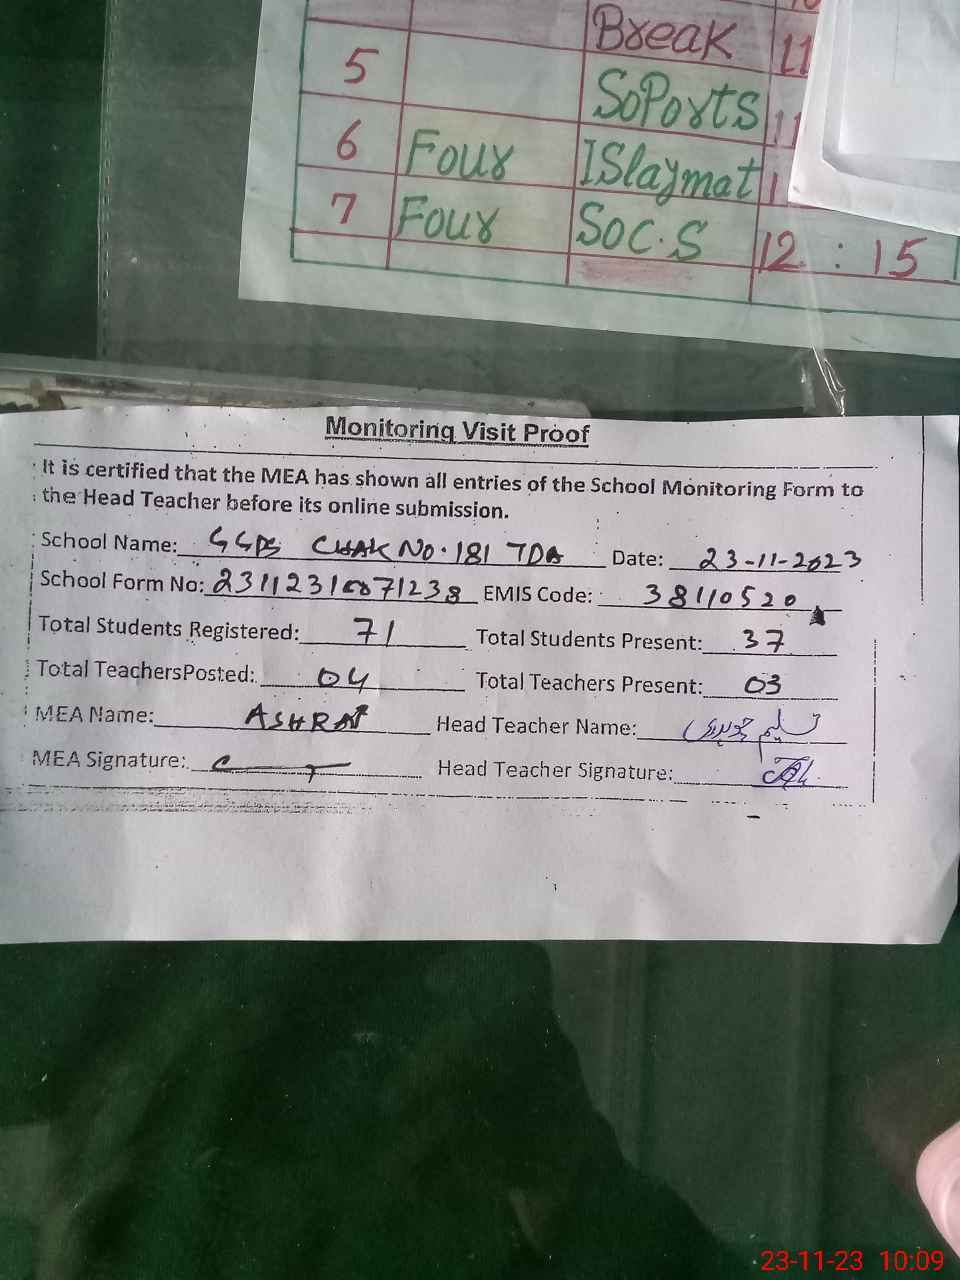 Break 11
5 SoPorts 11
6 Four ISlaymat 1
7 Four Soc.S 12 : 15
Monitoring Visit Proof
It is certified that the MEA has shown all entries of the School Monitoring Form to
the Head Teacher before its online submission.
School Name: GGPS CHAK NO. 181 TDA Date: 23-11-2023
School Form No: EMIS Code: 38110520
Total Students Registered: 71 Total Students Present: 37
Total TeachersPosted: 04 Total Teachers Present: 03
MEA Name: ASHRAF Head Teacher Name:
MEA Signature: Head Teacher Signature:
23-11-23 10:09